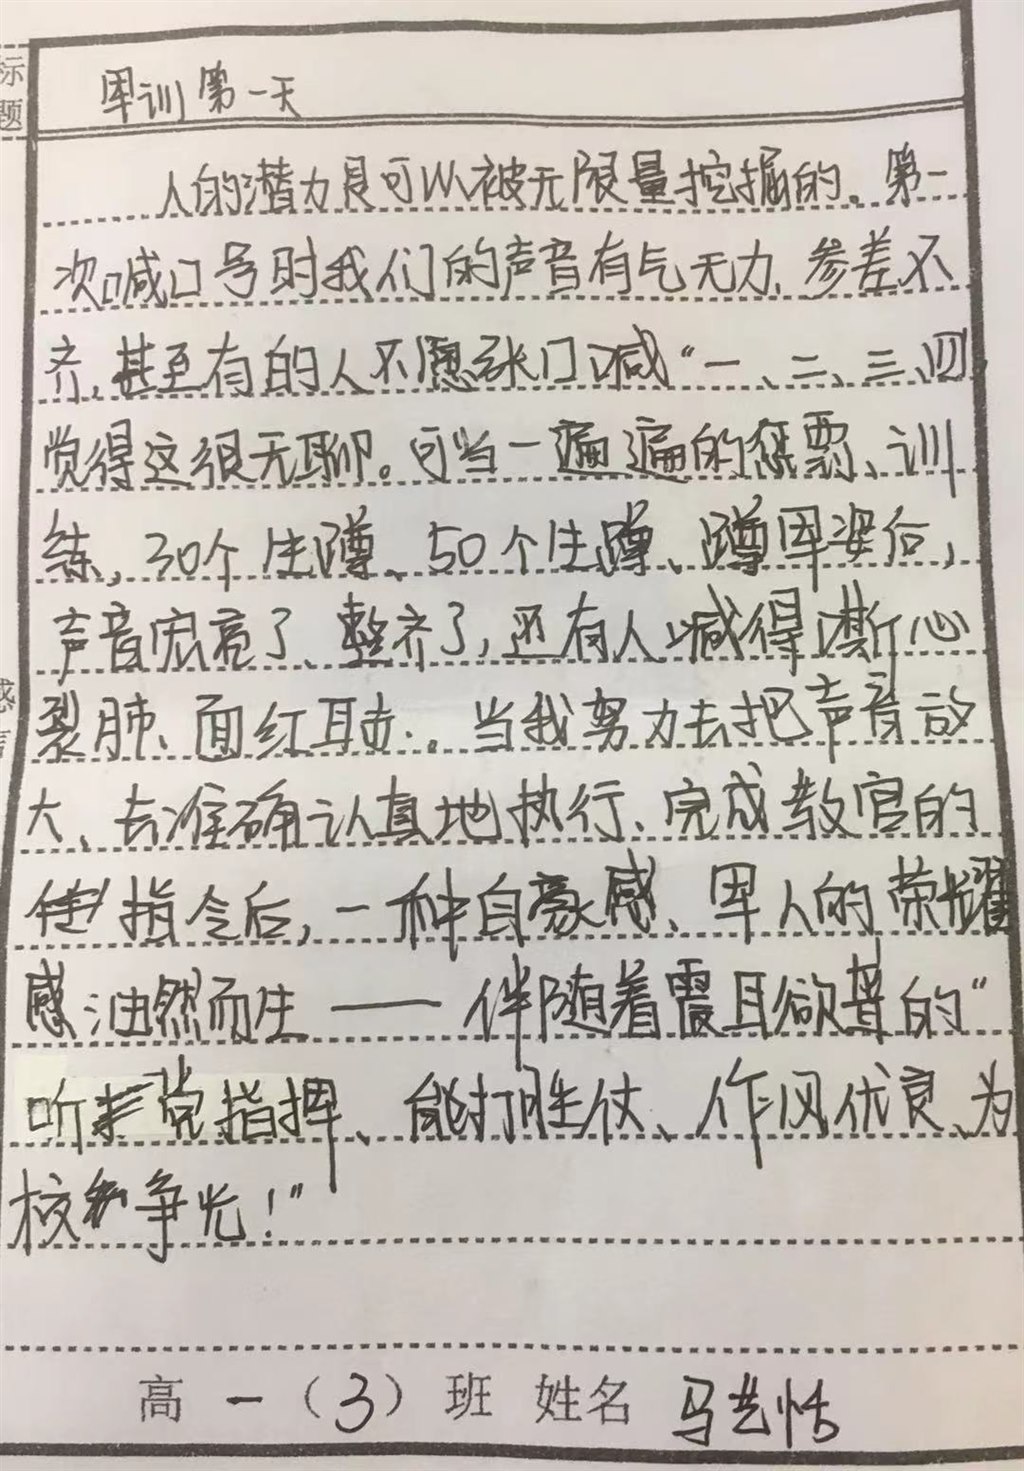 标题
军训第一天
人的潜力是可以被无限量挖掘的。第一
次喊口号时我们的声音有气无力、参差不
齐,甚至有的人不愿张口喊“一、二、三、四
觉得这很无聊。可当一遍遍的惩罚、训
练,30个生蹲、50个生蹲、蹲军姿后,
声音宏亮了、整齐了,还有人喊得嘶心
裂肺、面红耳赤.。当我努力去把声音放
大、去准确认真地执行、完成教官的
指令后,一种自豪感、军人的荣耀
感油然而生——伴随着震耳欲聋的“
听党指挥、能打胜仗、作风优良、为
校争光!”
高一(3)班 姓名 马艺恬